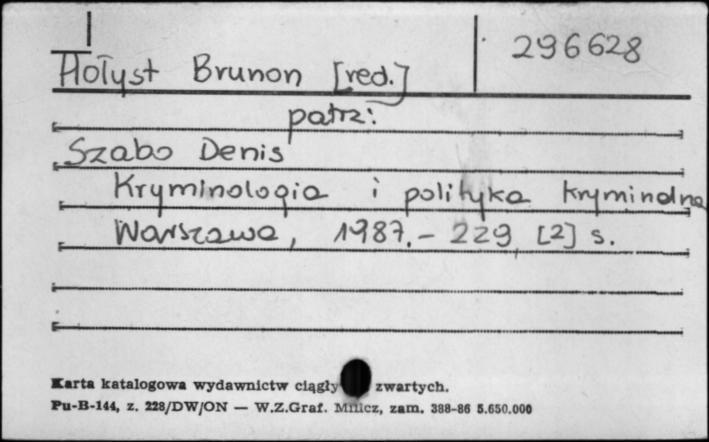 296628
Hołyst Brunon [red.]
patrz:
Szabo Denis
Kryminologia i polityka kryminalna
Warszawa, 1987. - 229, [2] s.
Karta katalogowa wydawnictw ciągły zwartych.
Pu-B-144, z. 228/DW/ON — W.Z.Graf. Milicz, zam. 388-86 5.650.000